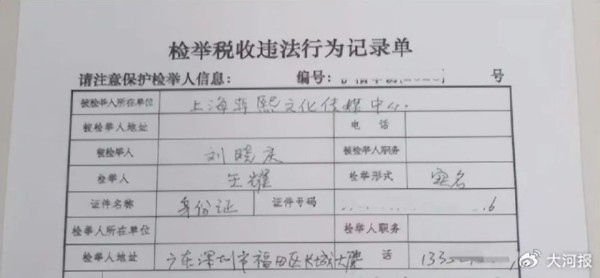 检举税收违法行为记录单
请注意保护检举人信息： 编号： 号
被检举人所在单位 上海 熙文化传媒中心
被检举人地址 电 话
被检举人 刘晓庆 被检举人职务
检举人 王耀 检举形式 实名
证件名称 身份证 证件号码 6
检举人所在单位 检举人职务
检举人地址 广东深圳市福田区长城大 电 话 133
大河报